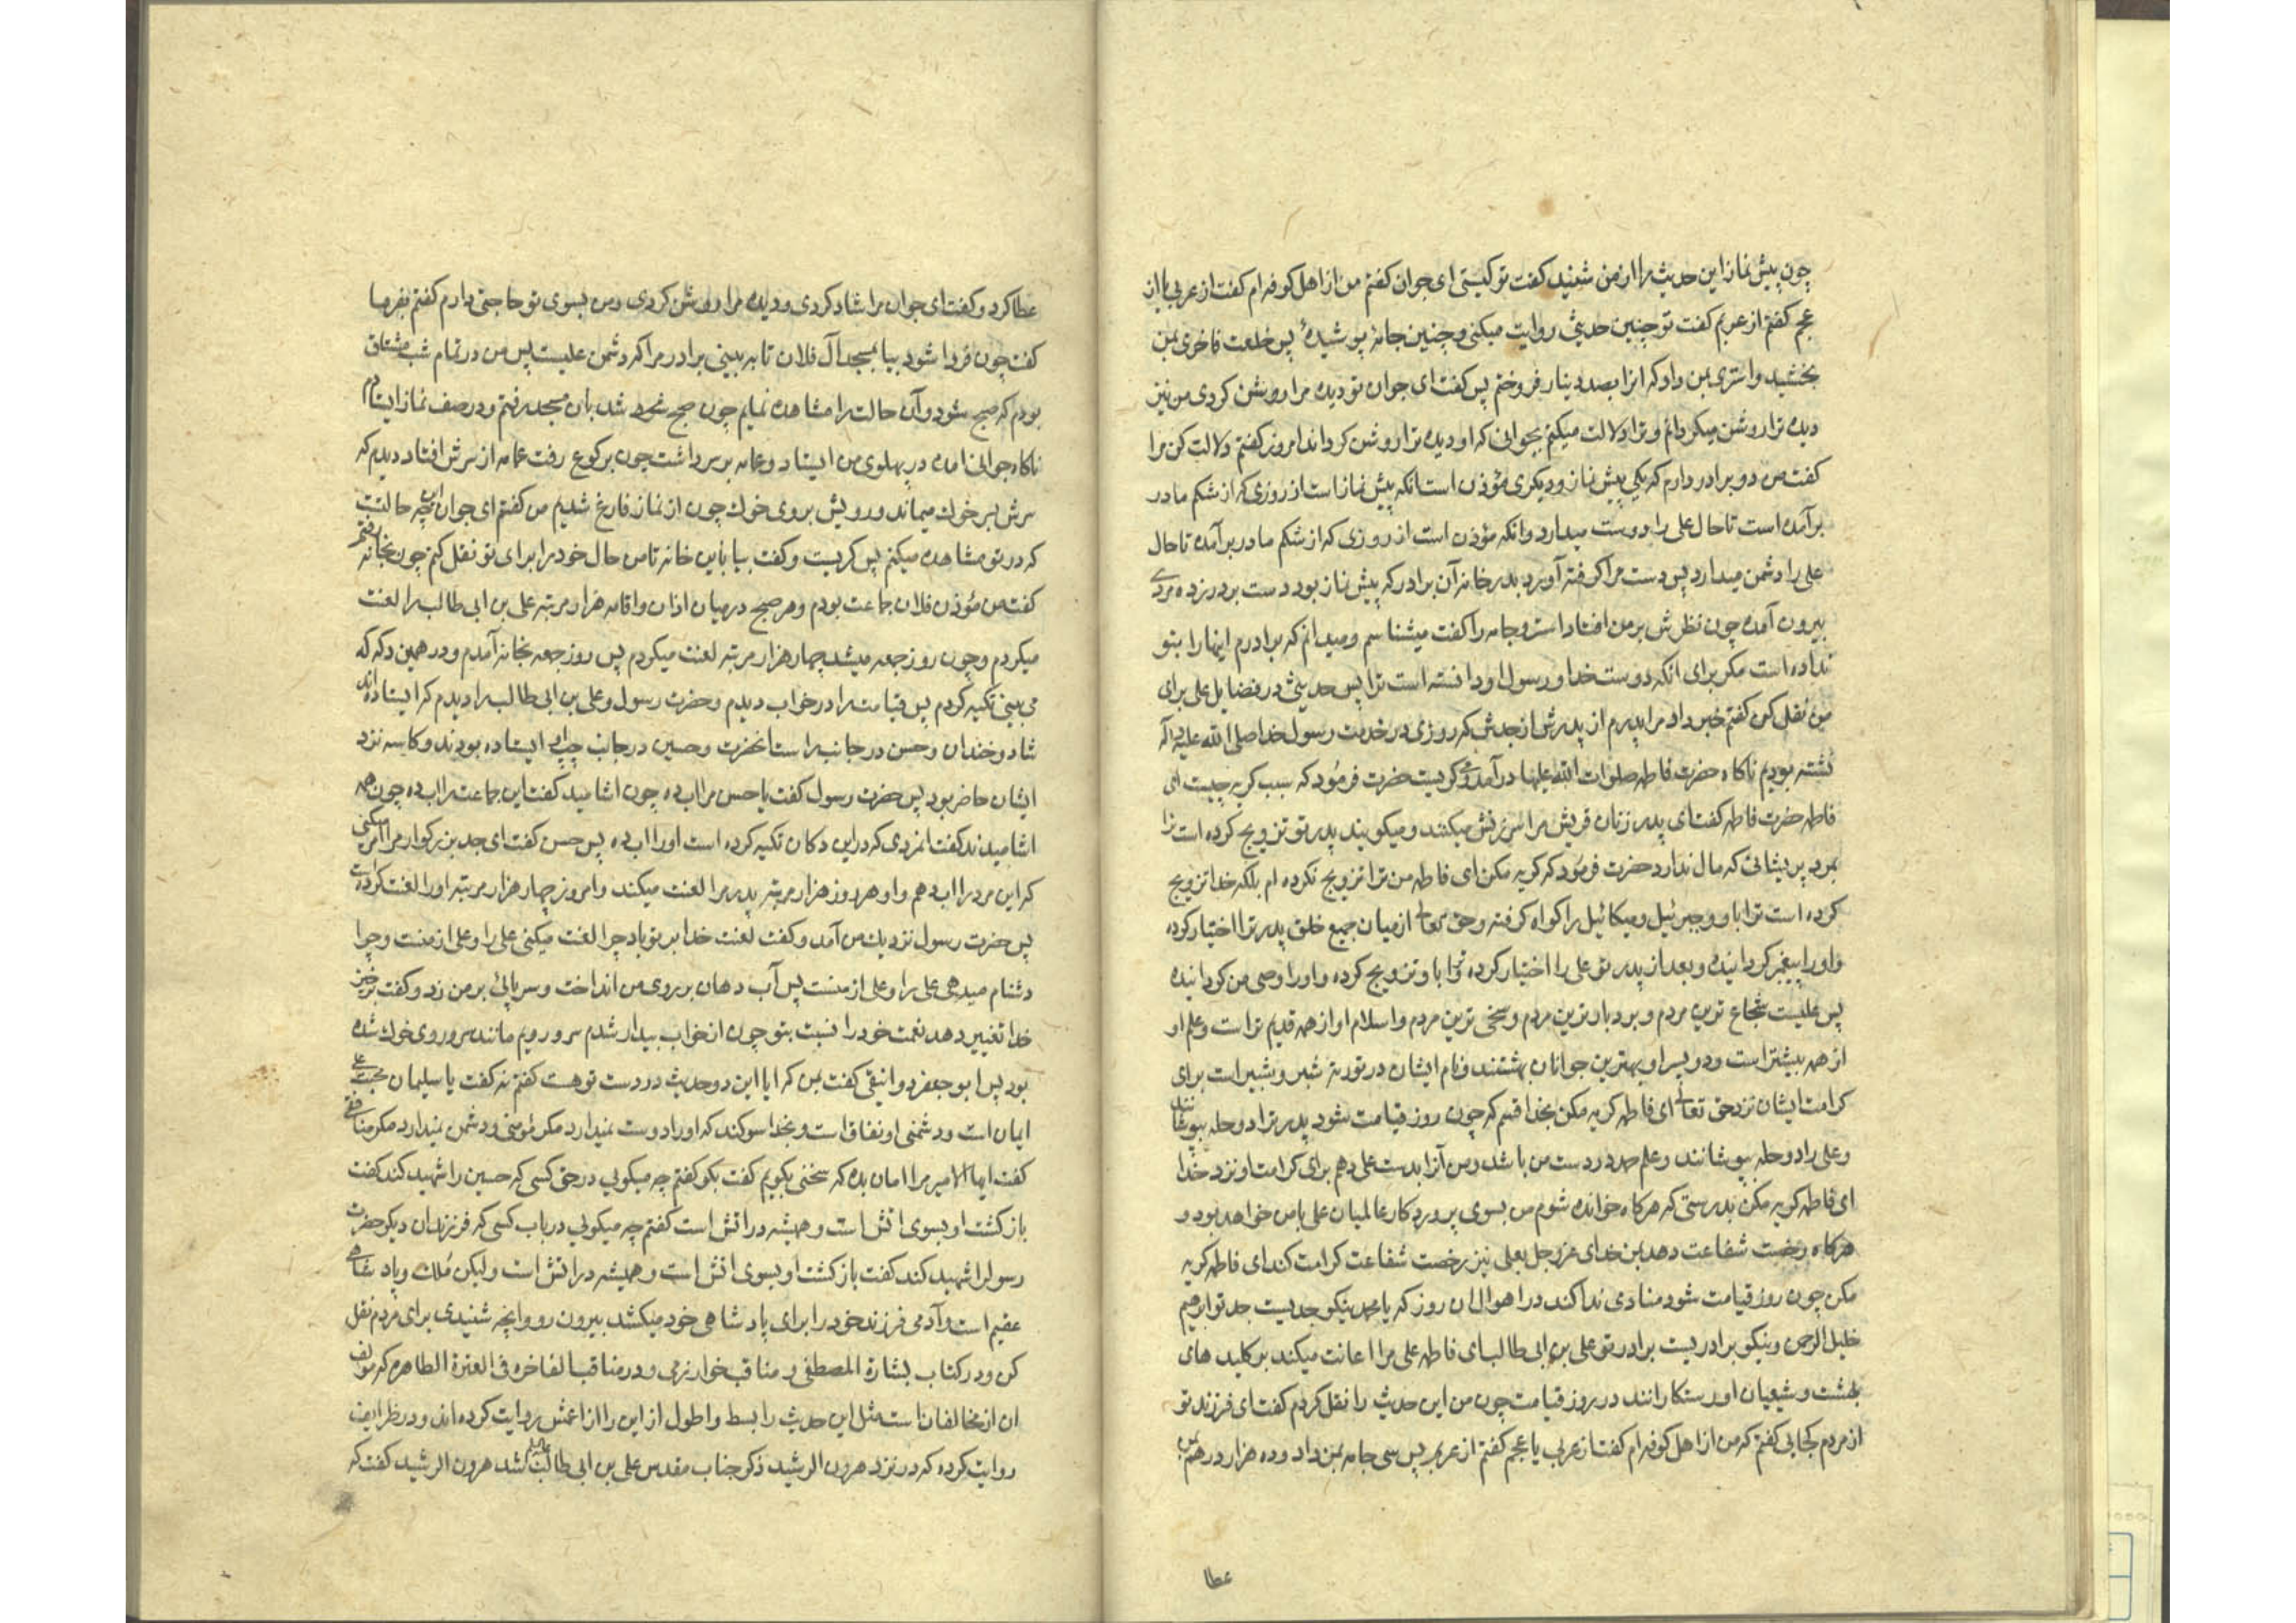 چون پیش نماز این حدیث را از من شنید کفت تو کیستی ای جوان کفتم من از اهل کوفه ام کفت از عربی یا از
عجم کفتم از عربم کفت تو چنین حدیثی روایت میکنی و چنین جامه پوشیدهٔ پس خلعت فاخری بمن
بخشید و استری بمن داد که انرا بصد دینار فروختم پس کفت ای جوان تو دیده مرا روشن کردی من نیز
دیده ترا روشن میکردانم و ترا دلالت میکنم بجوانی که او دیده ترا روشن کرداند امروز کفتم دلالت کن مرا
کفت من دو برادر دارم که یکی پیش نماز و دیکری مؤذن است انکه پیش نماز است از روزی که از شکم مادر
برآمده است تا حال علی را دوست میدارد و انکه مؤذن است از روزی که از شکم مادر برآمده تا حال
علی را دشمن میدارد پس دست مرا کرفته آورد بدر خانه آن برادر که پیش نماز بود دست بر در زده مردی
بیرون آمده چون نظرش بر من افتاد استر و جامه را کفت میشناسم و میدانم که برادرم اینها را بتو
نداده است مکر برای انکه دوست خدا و رسول او دانسته است ترا پس حدیثی در فضایل علی برای
من نقل کن کفتم خبر داد مرا پدرم از پدرش از جدش که روزی در خدمت رسول خدا صلی الله علیه و آله
نشسته بودیم ناکاه حضرت فاطمه صلوات الله علیها درآمد و کریست حضرت فرمود که سبب کریه چیست ای
فاطمه حضرت فاطمه کفت ای پدر زنان قریش مرا سرزنش میکنند و میکویند پدر تو تزویج کرده است ترا
بمرد پریشانی که مال ندارد حضرت فرمود که کریه مکن ای فاطمه من ترا تزویج نکرده ام بلکه خدا تزویج
کرده است ترا باو و جبرئیل و میکائیل را کواه کرفته و حق تعالی از میان جمیع خلق پدر ترا اختیار کرده
و او را پیغمبر کردانیده و بعد از پدر تو علی را اختیار کرده ترا باو تزویج کرده و او را وصی من کردانیده
پس علیست شجاع ترین مردم و بردبارترین مردم و سخی ترین مردم و اسلام او از همه قدیم تر است و علم او
از همه بیشتر است و دو پسر او بهترین جوانان بهشتند و نام ایشان در توریة شبر و شبیر است برای
کرامت ایشان نزد حق تعالی ای فاطمه کریه مکن بخدا قسم که چون روز قیامت شود پدر ترا دو حله بپوشانند
و علی را دو حله بپوشانند و علم حمد در دست من باشد و من آنرا بدست علی دهم برای کرامت او نزد خدا
ای فاطمه کریه مکن بدرستی که هرکاه خوانده شوم من بسوی پروردکار عالمیان علی با من خواهد بود و
هرکاه رخصت شفاعت دهد بمن خدای عز و جل بعلی نیز رخصت شفاعت کرامت کند ای فاطمه کریه
مکن چون روز قیامت شود منادی ندا کند در اهوال ان روز که یا محمد نیکو جدیست جد تو ابرهیم
خلیل الرحمن و نیکو برادریست برادر تو علی بن ابی طالب ای فاطمه علی مرا اعانت میکند بر کلید های
بهشت و شیعیان او رستکارانند در روز قیامت چون من این حدیث را نقل کردم کفت ای فرزند تو
از مردم کجایی کفتم که من از اهل کوفه ام کفت از عربی یا عجم کفتم از عربم پس سی جامه بمن داد و ده هزار درهم بمن
عطا
عطا کرد و کفت ای جوان مرا شاد کردی و دیده مرا روشن کردی و من بسوی تو حاجتی دارم کفتم بفرما
کفت چون فردا شود بیا بمسجد آل فلان تا به بینی برادر مرا که دشمن علیست پس من در تمام شب مشتاق
بودم که صبح شود و آن حالت را مشاهده نمایم چون صبح شد بان مسجد رفتم و در صف نماز ایستادم
ناکاه جوانی امده در پهلوی من ایستاد و عمامه بر سر داشت چون برکوع رفت عمامه از سرش افتاد دیدم که
سرش بسر خوك میماند و رویش بروی خوك چون از نماز فارغ شدیم من کفتم ای جوان این چه حالتست
که در تو مشاهده میکنم پس کریست و کفت بیا باین خانه تا من حال خود را برای تو نقل کنم چون بخانه رفتم
کفت من مؤذن فلان جماعت بودم و هر صبح در میان اذان و اقامه هزار مرتبه علی بن ابی طالب را لعنت
میکردم و چون روز جمعه میشد چهار هزار مرتبه لعنت میکردم پس روز جمعه بخانه آمدم و در همین دکه که
می بینی تکیه کردم پس قیامت را در خواب دیدم و حضرت رسول و علی بن ابی طالب را دیدم که ایستاده اند
شاد و خندان و حسن در جانب راست انحضرت و حسین در جانب چپ او ایستاده بودند و کاسه نزد
ایشان حاضر بود پس حضرت رسول کفت یا حسن مرا اب ده چون اشامید کفت این جماعت را اب ده چون همه
اشامیدند کفت انمردی که در این دکان تکیه کرده است او را اب ده پس حسن کفت ای جد بزرکوار مرا امر میکنی
که این مرد را اب دهم و او هر روز هزار مرتبه پدر مرا لعنت میکند و امروز چهار هزار مرتبه او را لعنت کرده است
پس حضرت رسول نزدیك من آمد و کفت لعنت خدا بر تو باد چرا لعنت میکنی علی را و علی از منست و چرا
دشنام میدهی علی را و علی از منست پس آب دهان بر روی من انداخت و سر پائی بر من زد و کفت برخیز
خدا تغییر دهد نعمت خود را نسبت بتو چون از خواب بیدار شدم سر و رویم مانند سر و روی خوك شده
بود پس ابو جعفر دوانیقی کفت بمن که ایا این دو حدیث در دست تو هست کفتم نه کفت یا سلیمان محبت علی
ایمان است و دشمنی او نفاق است و بخدا سوکند که او را دوست نمیدارد مکر مؤمنی و دشمن نمیدارد مکر منافقی
کفت ایها الامیر مرا امان بده که سخنی بکویم کفت بکو کفتم چه میکویی در حق کسی که حسین را شهید کند کفت
بازکشت او بسوی اتش است و همیشه در اتش است کفتم چه میکویی در باب کسی که فرزندان دیکر حضرت
رسول را شهید کند کفت بازکشت او بسوی اتش است و همیشه در اتش است و لیکن مُلك و پادشاهی
عقیم است و آدمی فرزند خود را برای پادشاهی خود میکشد بیرون رو و انچه شنیدی برای مردم نقل
کن و در کتاب بشارة المصطفی و مناقب خوارزمی و در مناقب الفاخره فی العترة الطاهره که مولف
ان از مخالفان است مثل این حدیث را بسط و اطول از این را از اعمش روایت کرده اند و در طرایف
روایت کرده که در نزد هرون الرشید ذکر جناب مقدس علی بن ابی طالب شد هرون الرشید کفت که